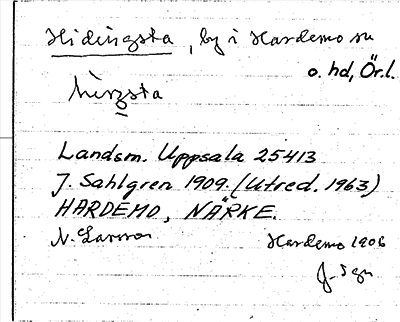 Hidingsta, by i Hardemo sn
o. hd, Ör.l.
Landsm. Uppsala 25413
J. Sahlgren 1909. (Utred. 1963)
HARDEMO, NÄRKE.
N. Larsson Hardemo 1906